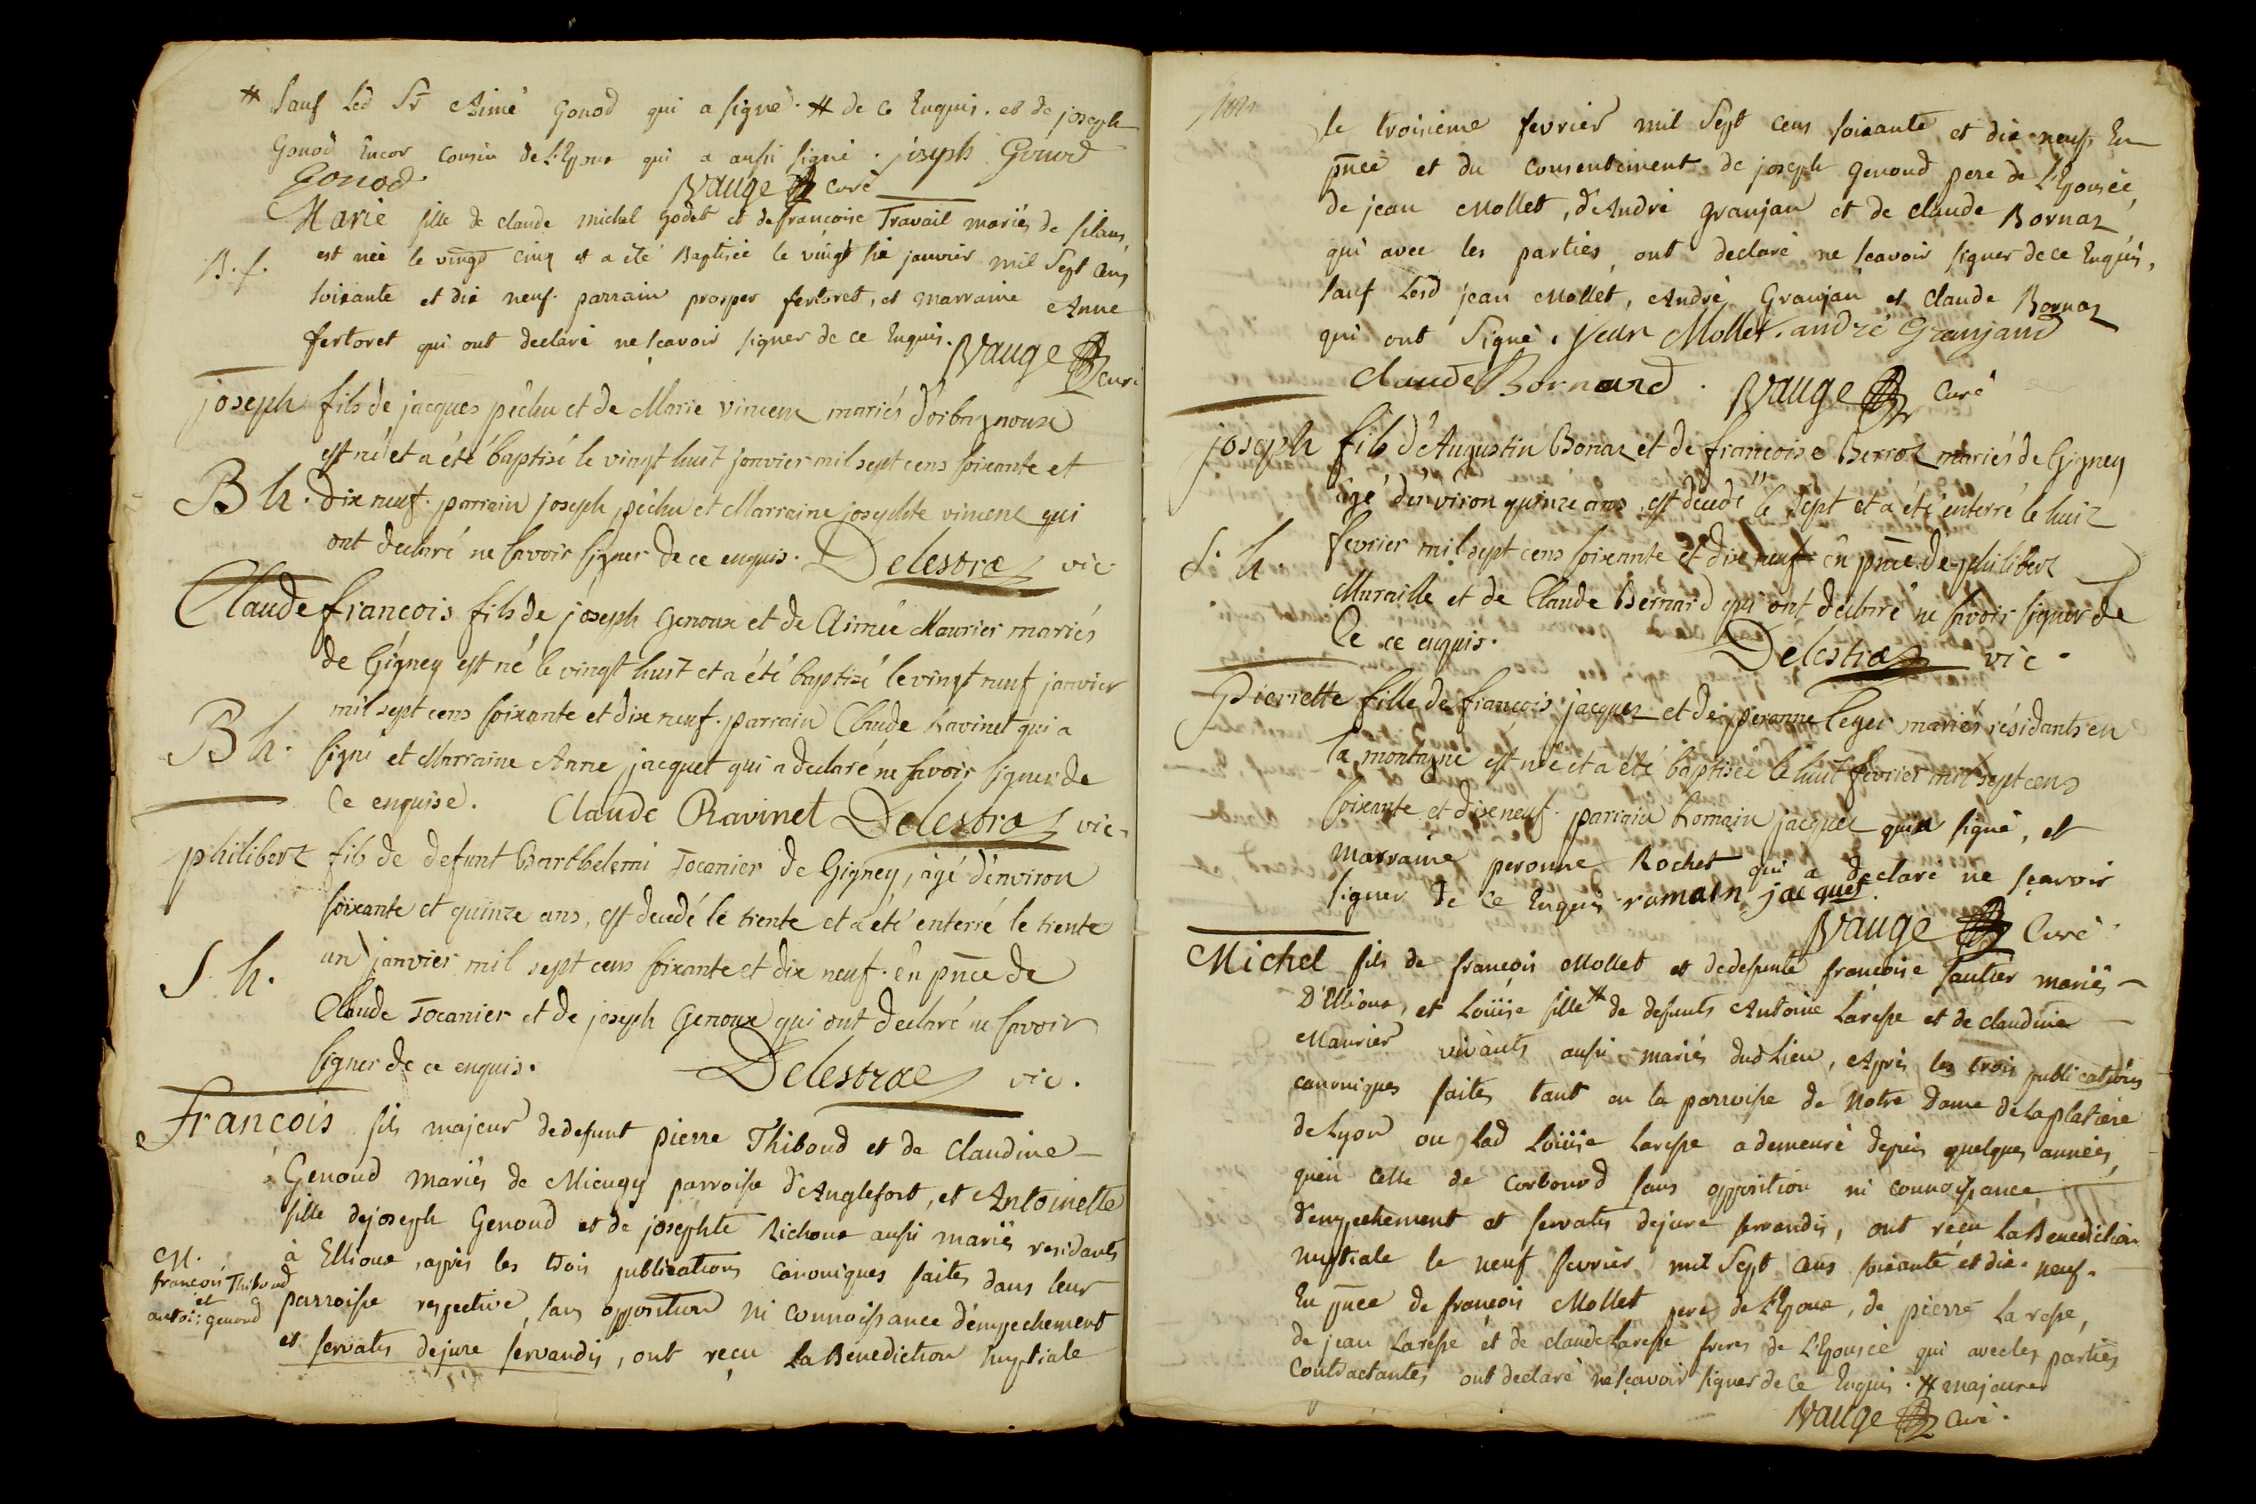 # sauf led Sr Aimé Gonod qui a signé. # de ce enquis. et de joseph
Gonod encor cousin de l'Epoux qui a aussi signé. joseph Gonod
Gonod Vauge curé
Marie fille de claude michel Godet et de francoise Travail mariés de silans,
B. f. est née le vingt cinq et a été Baptisée le vingt six janvier mil sept cens
soixante et dix neuf. parrain prosper fertoret, et marraine Anne
fertoret qui ont declaré ne scavoir signer de ce enquis. Vauge curé
joseph fils de jacques pechu et de Marie vincent mariés d'orbagnoux
est né et a été baptisé le vingt huit janvier mil sept cens soixante et
B h. dix neuf. parrain joseph pechu et Marraine josephte vincent qui
ont declaré ne savoir signer de ce enquis. Delestraz vic.
Claude françois fils de joseph Genoux et de Aimée Maurier mariés
de Gigney est né le vingt huit et a été baptisé le vingt neuf janvier
mil sept cens soixante et dix neuf. parrain Claude Ravinet qui a
B h. signé et Marraine Anne jacquet qui a declaré ne savoir signer de
ce enquise. Claude Ravinet Delestraz vic.
philibert fils de defunt Barthelemi Tocanier de Gigney, âgé d'environ
soixante et quinze ans, est decedé le trente et a été enterré le trente
S. h. un janvier mil sept cens soixante et dix neuf. en pnce de
Claude Tocanier et de joseph Genoux qui ont declaré ne savoir
signer de ce enquis. Delestraz vic.
Francois fils majeur de defunt pierre Thiboud et de Claudine
Genoud mariés de Mieugy parroisse d'Anglefort, et Antoinette
fille de joseph Genoud et de josephte Richoux aussi mariés residants
M. à Ellioux, après les trois publications canoniques faites dans leur
francois Thiboud et antoi: genoud
parroisse respective, sans opposition ni connoissance d'empechement
et servatis de jure servandis, ont reçu la Benediction nuptiale
le troisieme fevrier mil sept cens soixante et dix neuf. En
pnce et du consentement de joseph genoud pere de l'Epousée,
de jean Mollet, d'André granjan et de claude Bornaz
qui avec les parties ont declaré ne scavoir signer de ce Enquis,
sauf lesd jean Mollet, André Granjan et claude Bornaz
qui ont signé. jean Mollet. andré Granjand
claude Bornard. Vauge curé
joseph fils d'Augustin Bonaz et de françoise Berroz mariés de Gigney
âgé d'environ quinze ans est decedé le sept et a été enterré le huit
S. h. fevrier mil sept cens soixante et dix neuf en pnce de philibert
Muraille et de Claude Bernard qui ont declaré ne savoir signer de
Ce ce enquis. Delestraz vic.
Pierrette fille de francois jacquet et de peronne Leger mariés résidants en
la montagne est née et a été baptisée le huit fevrier mil sept cens
soixante et dix neuf. parrain Romain jacquet qui a signé, et
marraine peronne Rochet qui a declaré ne sçavoir
signer de ce Enquis romain jacquet.
Vauge Curé
Michel fils de françois Mollet et de defunte francoise sautier mariés
D'Ellioux, et Loüise fille # de defunts Antoine Laresse et de claudine
Maurier vivants aussi mariés dud Lieu, Après les trois publications
canoniques faites tant en la parroisse de Notre Dame de la platiere
de Lyon ou lad Loüise Laresse a demeuré depuis quelques années,
qu'en celle de Corbonod sans opposition ni connoissance
d'empechement et servatis de jure servandis, ont reçu la Benediction
nuptiale le neuf fevrier mil sept cens soixante et dix-neuf.
En pnce de françois Mollet pere de l'Epoux, de pierre Laresse,
de jean Laresse et de claude Laresse freres de l'Epousée qui avec les parties
contractantes ont declaré ne sçavoir signer de ce Enquis. # majeure
Vauge Curé.